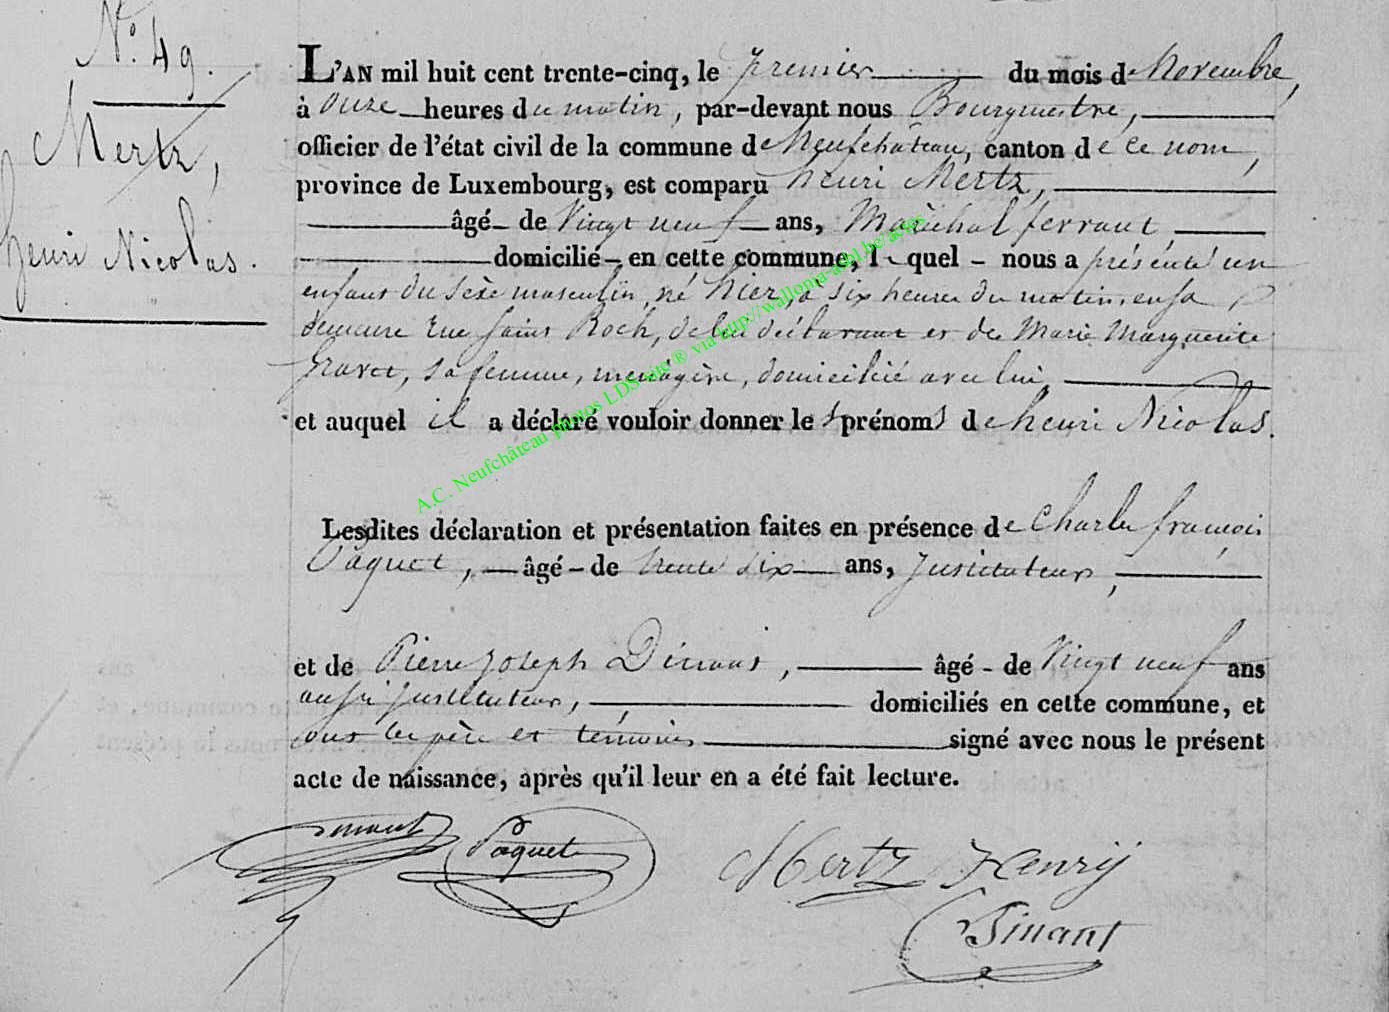 N.° 49.
Mertz,
henri Nicolas.
L'AN mil huit cent trente-cinq, le premier du mois de Novembre,
à onze heures du matin, par-devant nous Bourgmestre,
officier de l'état civil de la commune de Neufchâteau, canton de ce nom,
province de Luxembourg, est comparu henri Mertz,
âgé de vingt neuf ans, Maréchal ferrant,
domicilié en cette commune, lequel nous a présenté un
enfant du sexe masculin, né hier, à six heures du matin, en sa
demeure rue saint Roch, de lui déclarant et de Marie Marguerite
gravet, sa femme, menagère, domicilié avec lui,
et auquel il a déclaré vouloir donner les prénoms de henri Nicolas.
Lesdites déclaration et présentation faites en présence de Charles françois
Paquet, âgé de trente six ans, Instituteur,
et de Pierre Joseph âgé de vingt neuf ans
aussi Instituteur, domiciliés en cette commune, et
ont les père et témoins signé avec nous le présent
acte de naissance, après qu'il leur en a été fait lecture.
Paquet Mertz Henrij
Dinant
A.C. Neufchâteau photos LDS site ® via http://wallonia-asbl.be/actes